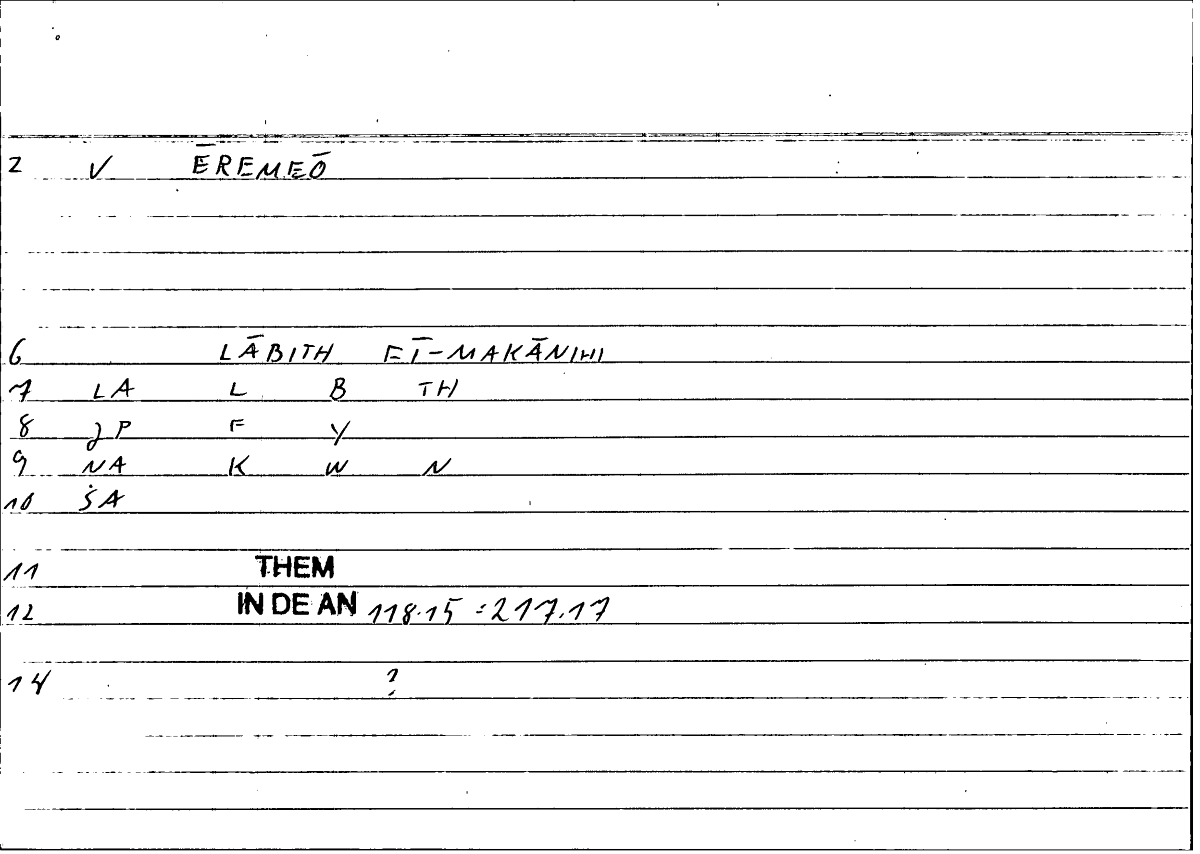 2 V ĒREMEŌ
6 LĀBITH FĪ-MAKĀNIHI
7 LA L B TH
8 JP F Y
9 NA K W N
10 ṠA
11 THEM
12 IN DE AN 118.15 = 217.17
14 ?